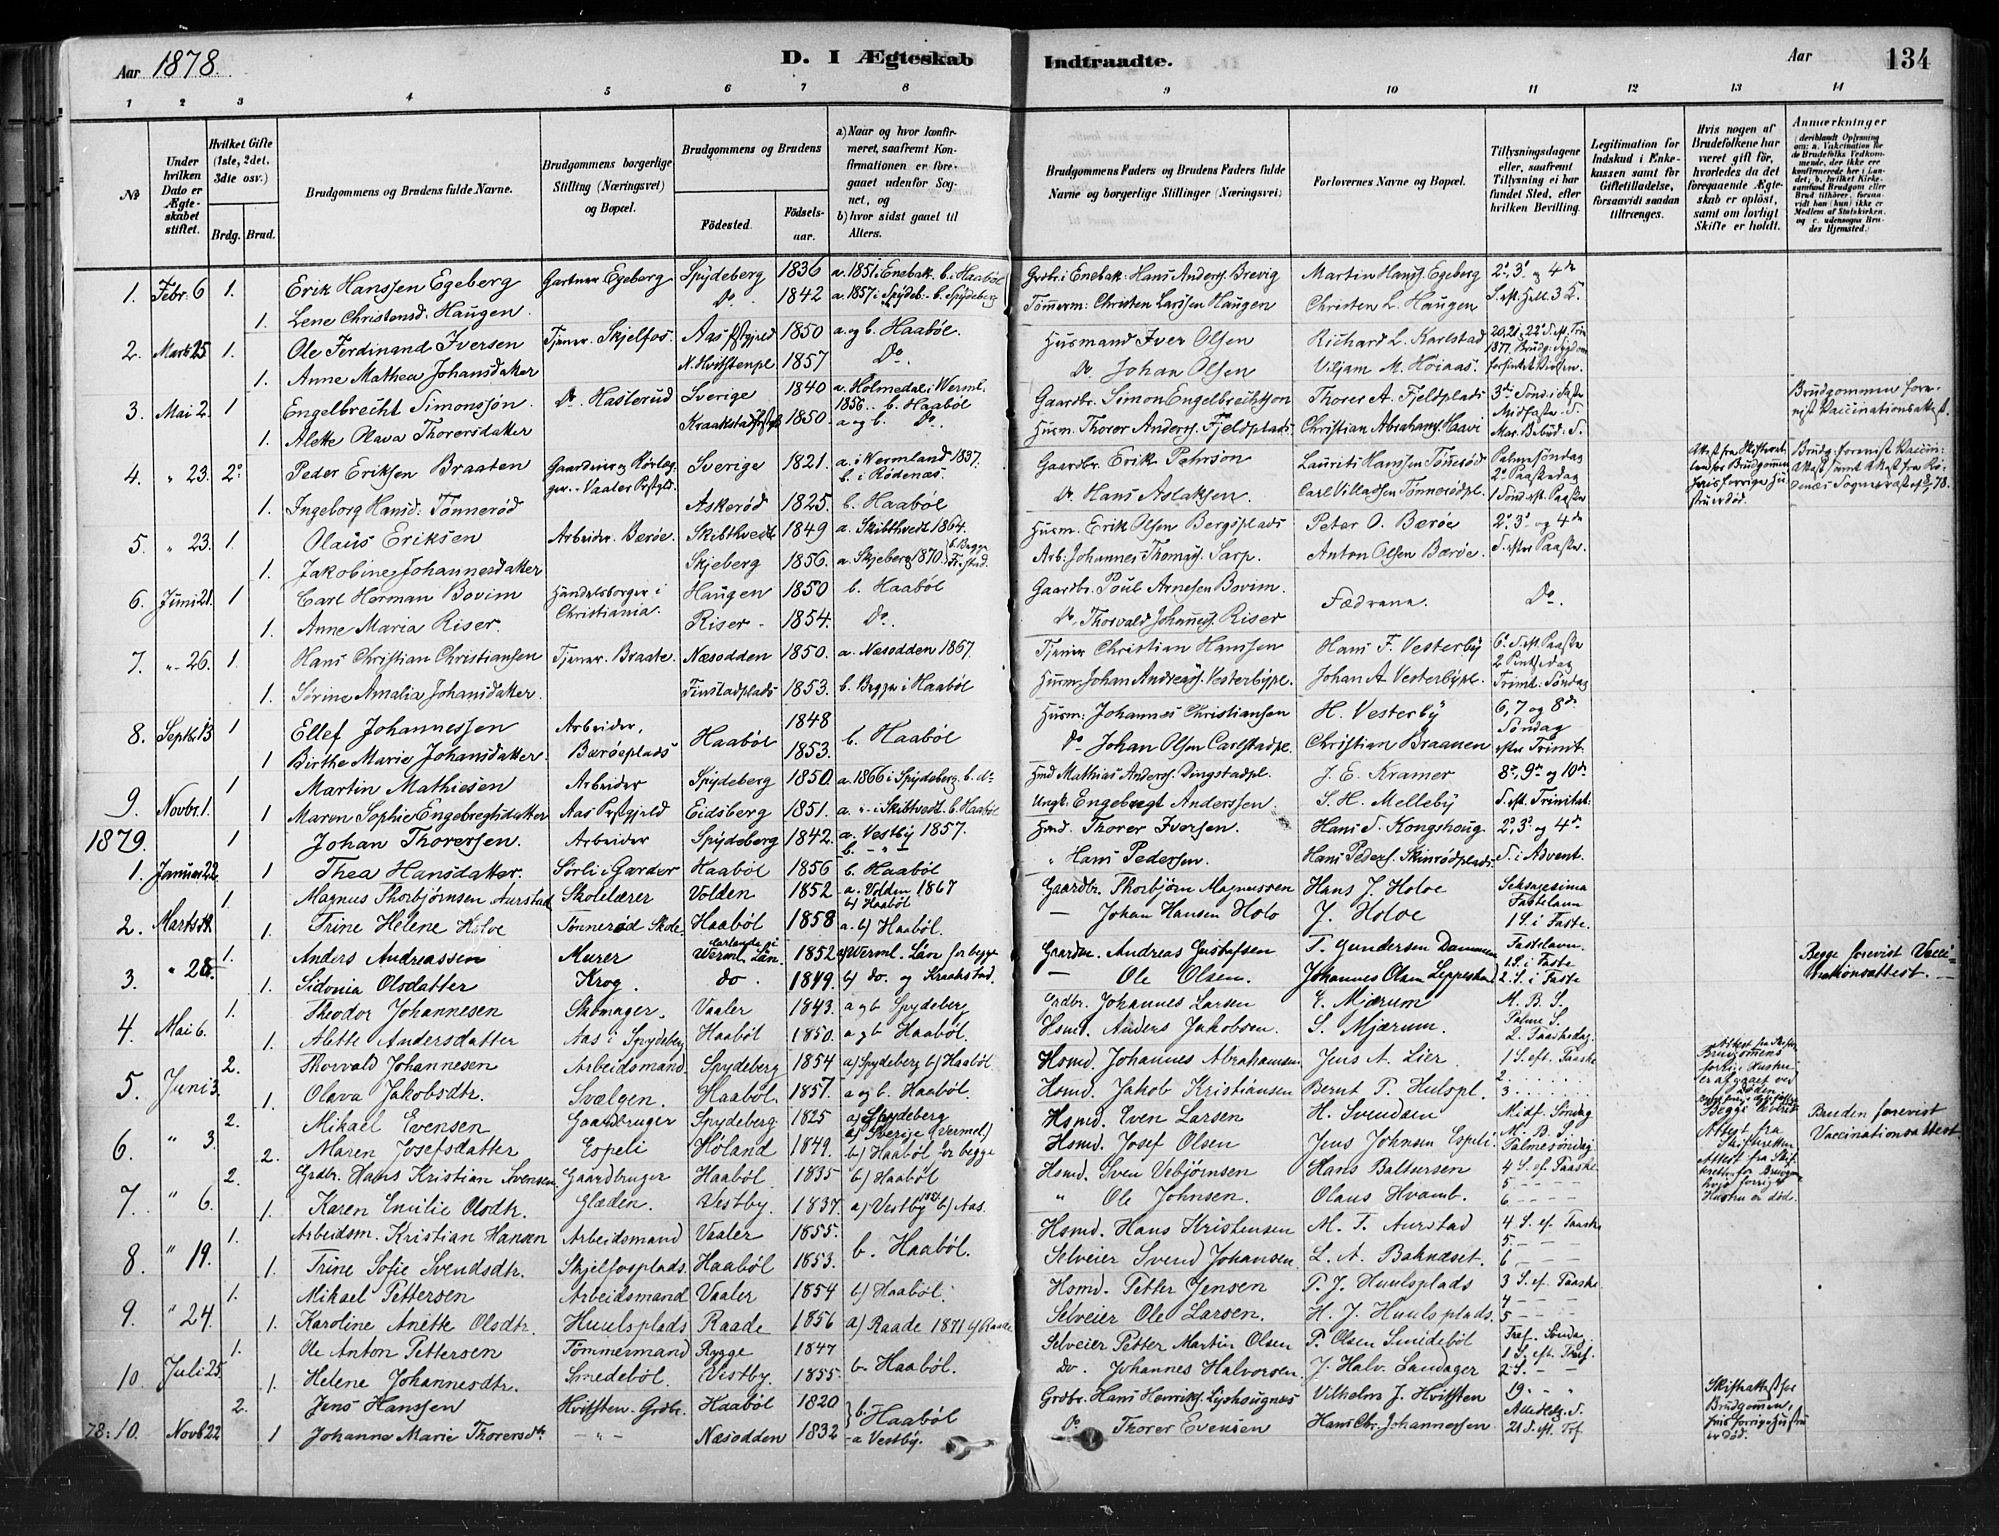 Aar 1878. D. I Ægteskab Indtraadte. Aar 134
1 2 3 4 5 6 7 8 9 10 11 12 13 14
№
Under hvilken Dato er Ægteskabet stiftet.
Hvilket Gifte (1ste, 2det, 3die osv.)
Brdg. Brud.
Brudgommens og Brudens fulde Navne.
Brudgommens borgerlige Stilling (Næringsvei) og Bopæl.
Brudgommens og Brudens
Fødested. Fødselsaar.
a) Naar og hvor konfirmeret, saafremt Konfirmationen er foregaaet udenfor Sognet, og
b) hvor sidst gaaet til Alters.
Brudgommens Faders og Brudens Faders fulde Navne og borgerlige Stillinger (Næringsvei)
Forlovernes Navne og Bopæl.
Tillysningsdagene eller, saafremt Tillysning ei har fundet Sted, efter hvilken Bevilling.
Legitimation for Indskud i Enkekassen samt for Giftetilladelse, forsaavidt saadan tiltrænges.
Hvis nogen af Brudefolkene har været gift før, hvorledes da det foregaaende Ægteskab er opløst, samt om lovligt Skifte er holdt.
Anmærkninger
(deriblandt Oplysning om: a. Vakcination for de Brudefolks Vedkommende, der ikke ere konfirmerede her i Landet; b. hvilket Kirkesamfund Brudgom eller Brud tilhører, forsaavidt han (hun) ikke er Medlem af Statskirken, og c. udensogns Brudes Hjemsted.
1. Febr. 6 1. Erik Hanssen Egeberg Gartner Egeberg Spydeberg 1836 a. 1851 i Enebak. b. i Haabøl Grdbr. i Enebak: Hans Anderss. Brevig Martin Hanss. Egeberg 2', 3' og 4de
1. Lene Christensd. Haugen. Do. 1842 a. 1857 i Spydeb. b. Spydeberg Tømerm: Christen Larssen Haugen Christen L. Haugen S. eft. Hell. 3 K.
2. Marts 25 1. Ole Ferdinand Iversen Tjener. Skjelfos. Aas Pstgjeld 1850 a. og b. Haabøl. Husmand Iver Olsen Richard L. Karlstad 20, 21, 22' S. eft. Trin
1. Anne Mathea Johansdatter N. Hvitstenpl 1857 Do Do. Johan Olsen Viljam M. Høiaas. 1877.
3. Mai 2. 1 Engelbrecht Simonssøn Do. Haslerud Sverige 1840 a. Holmedal i Werml. 1856. b. Haabøl Gaardbr. Simon Engelbrechtson Thorer A. Fjeldplads 3die Sønd. i Faste Brudgommen forevist Vaccinationsattest.
1. Alette Olava Thorersdatter Kraakstad Pstgj 1850. a og b. Do. Husm. Thorer Anderss. Fjeldplads Christian Abrahams. Haavi Midfaste S. Mar. Bebud. S.
4. " 23. 2' Peder Eriksen Braaten Gaardeier og Sverige 1821. a. i Wermland 1837. b. i Rødenæs. Gaardbr. Erik Pehrson Lauriti Hanssen Tønerød Palmesøndag
1. Ingeborg Hansd. Tønnerød Vaaler Pstgjld. Askerød 1825. b. Haabøl Do. Hans Aslaksen. Carl Villadsen Tønnerødpl. 2' Paaskedag 1 Sønd. eft. Paaske
5. " 23. 1. Olaus Eriksen Arbeider. Berøe. Skibthvedt 1849 a. Skibthvedt 1864. Husm. Erik Olsen Bergsplads Peter O. Berøe 2', 3' og 4de
1. Jakobine Johannesdatter Skjeberg 1856. a. Skjeberg 1870. b. Begge Fr.stad. Arb: Johannes Thomass. Sarp. Anton Olsen Bærøe. S. efter Paaske.
6. Juni 21. 1 Carl Herman Bovim Handelsborger i Christiania. Haugen 1850 b. Haabøl Gaardbr. Poul Arnesen Bovim. Fædrene. Do.
1. Anne Maria Riser. Riser 1854. Do. Do. Thorvald Johanness. Riser
7. " 26. 1. Hans Christian Christiansen Tjener. Braate. Næsodden 1850. a. Næsodden 1867. Tjener Christian Hanssen Hans F. Vesterby 6' S. eft. Paaske
1. Sørine Amalia Johansdatter. Finstadplads 1853. b. Begge i Haabøl Husm. Johan Andreass. Vesterbypl. Johan A Vesterbypl. 2 Pintsedag Trinit. Søndag
8. Septbr. 13 1 Ellef Johannessen Arbeider. Haabøl 1848 b. Haabøl Husm: Johannes Christiansen H. Vesterby 6, 7 og 8de Søndag
1 Birthe Marie Johansdatter Bærøeplads 1853. Do Johan Olsen Carlstadpl. Christian Braanen efter Trinit.
9. Novbr. 1. 1 Martin Mathiesen Arbeider Spydeberg 1850. a. 1866 i Spydeberg. b. do Hmd Mathias Anderss. Dingstadpl. J. E. Kramer 8de, 9de og 10de
1 Maren Sophie Engebregtsdatter Aas Pstgjeld Eidsberg 1851. a. i Skiptvedt. b. Haabøl Ungk. Engebregt Anderssen. S. H. Melleby S. eft. Trinitat.
1879.
1 Johan Thorersen. Arbeider Spydeberg 1842. a. Vestby 1857. Hmd. Thorer Iversen. Hans S. Kongshoug. 2', 3' og 4de
1. Januar 22. 1 Thea Hansdatter. Sørli i Garder Haabøl 1856 b. Haabøl " Hans Pedersen. Hans Peders. Skinrødplads. S. i Advent.
2. Marts 1. Magnus Thorbjørnsen Aurstad Skolelærer Volden 1852 a. Volden 1867 b) Haabøl Gaardbr. Thorbjørn Magnussen Hans J. Holve Seksagesima Fastelavn
1. Trine Helene Holve Tønnerød Skole. Haabøl 1858 a. b) Haabøl. — Johan Hansen Holo J. Holve 1 S. i Faste
3. " 28. 1. Anders Andreassen Murer Werml. Län. 1852 a) Werml. Län for begge Gaardm. Andreas Gustafsen T. Gundersen Dammen Fastelavn. Begge forevist Vaccinationsattest.
1. Sidonia Olsdatter Krog. do. 1849. b) do. og Kraakstad. — Ole Olsen. Johannes Olsen 1. S. i Faste 2. S. i Faste
4. Mai 6. 1. Theodor Johannesen Skomager. Vaaler 1843. a og b Spydeberg Grdbr. Johannes Larsen E. Mjærum M. B. S.
1. Alette Andersdatter Aas i Spydeberg Haabøl 1850. a og b Haabøl Hsmd. Anders Jakobsen. S. Mjærum. Palme S. 2. Paaskedag.
5. Juni 3. 2. Thorvald Johannesen Arbeidsmand Spydeberg 1854 a) Spydeberg b) Haabøl Hsmd. Johannes Abrahamsen Jens A. Lier 1 S. eft. Paaske
1. Olava Jakobsdtr. Svælgen. Haabøl. 1857. a og b. Haabøl. Hsmd. Jakob Kristiansen Bernt P. Hulspl. 2. 3.
6. " 3. 2. Mikael Evensen Gaardbruger Spydeberg 1825 a) Spydeberg Hsmd. Even Larsen H. Svendsen Midf. Søndag Bruden forevist Vaccinationsattest
2. Maren Josefsdatter Espeli Høland 1849. a) Sverige (Vermel) b) Haabøl for begge Hsmd. Josef Olsen Jens Johnsen Espeli. M. B. S. Palmesøndag
7. " 6. 2. Grdbr. Hans Kristian Svensen Gaardbruger Haabøl 1835 b) Haabøl Hsmd. Sven Vebjørnsen Hans Baltersen 4 S. ef. Paaske
1. Karen Emilie Olsdtr. Glæden. Vestby. 1837. a) Vestby b) Aas. " Ole Johnsen. Olaus Hvamb. 5 6
8. " 19. 1. Arbeidsm. Kristian Hansen Arbeidsmand Vaaler 1855. b. Haabøl. Hsmd. Hans Kristensen M. T. Aurstad 4 S. ef. Paaske
1. Trine Sofie Svendsdtr. Skjelfosplads. Haabøl 1853. Selveier Svend Johansen. L. A. Baknæset. 5. 6
9. " 24. 1. Mikael Pettersen Arbeidsmand Vaaler 1854 b) Haabøl. Hsmd. Petter Jensen P. J. Huulsplads 3 S. ef. Paaske
1. Karoline Anette Olsdtr. Huulsplads Raade 1856 a) Raade 1871 b) Raade Selveier Ole Larsen. H. J. Huulsplads. 4 5
10. Juli 25. 1. Ole Anton Pettersen Tømmermand Rygge 1847 b. Haabøl. Selveier Petter Martin Olsen P. Olsen Smidebøl Tref. Søndag
1. Helene Johannesdtr. Smedebøl. Vestby. 1855. do. Johannes Halvorsen J. Halv. Landager 1 S. eft. Tref. 2 S.
78: 10. Novb. 22 2. Jens Hanssen Hvitsten Grdbr. Haabøl 1820 b. Haabøl Grdbr. Hans Henriks. Vilhelm J. Hvitsten 19 Skifteattest for Brudgommen, hvis forrige Hustru er død.
1 Johanne Marie Thorersdtr Næsodden 1832 a Vestby. Do Thorer Evensen Hans Chr. Johannessen. 21 S. eft. Tref